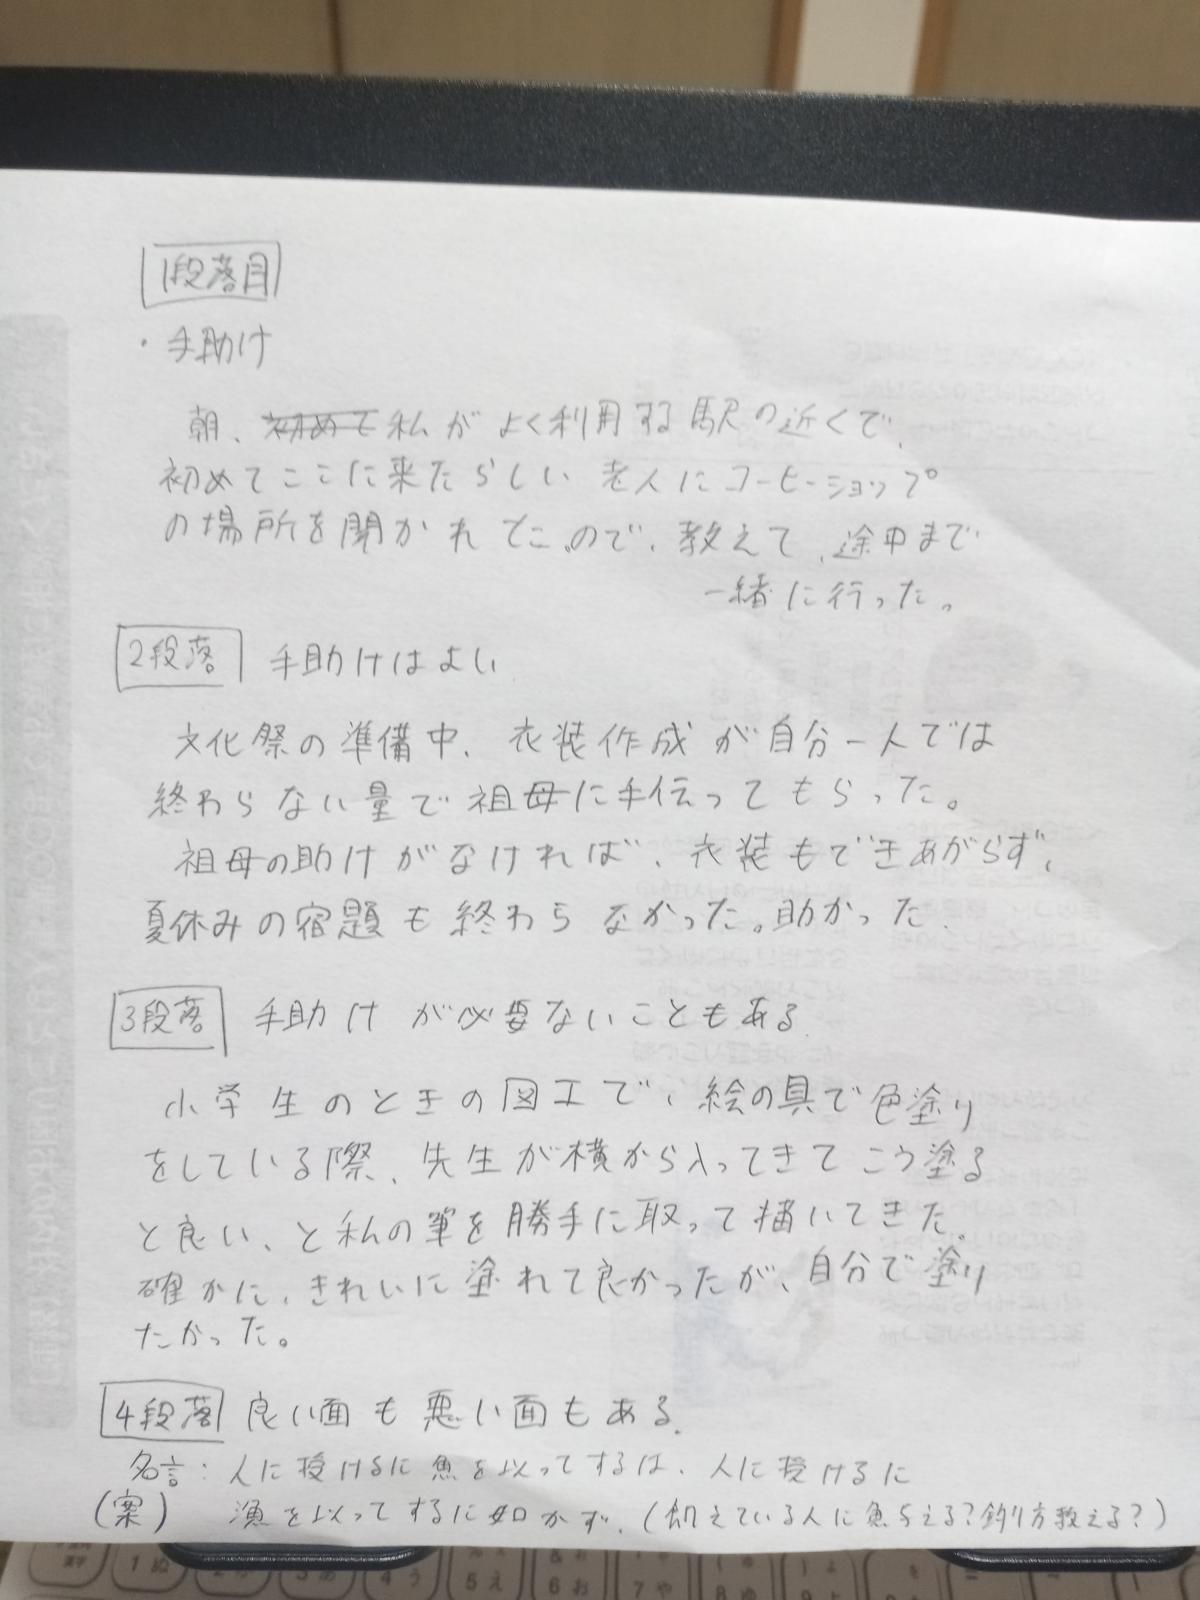 1段落目
・手助け
朝、初めて私がよく利用する駅の近くで、
初めてここに来たらしい老人にコーヒーショップ
の場所を聞かれてた。ので、教えて、途中まで
一緒に行った。
2段落 手助けはよい
文化祭の準備中、衣装作成が自分一人では
終わらない量で祖母に手伝ってもらった。
祖母の助けがなければ、衣装もできあがらず、
夏休みの宿題も終わらなかった。助かった。
3段落 手助けが必要ないこともある。
小学生のときの図工で、絵の具で色塗り
をしている際、先生が横から入ってきてこう塗る
と良い、と私の筆を勝手に取って描いてきた。
確かに、きれいに塗れて良かったが、自分で塗り
たかった。
4段落 良い面も悪い面もある。
名言：人に授けるに魚を以ってするは、人に授けるに
(案) 漁を以ってするに如かず。(飢えている人に魚与える?釣り方教える?)
1 ぬ
4 う
5 え
6 お
7 や
8 ゆ